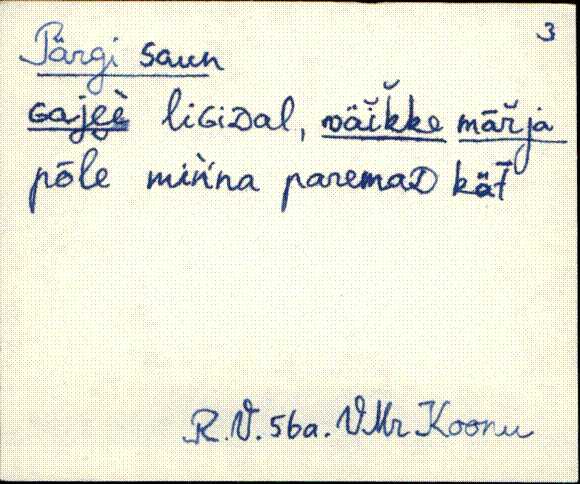 3
Pärgi saun
Gajeè liGiDal, väĭk̆ke mār̆ja
pōle miǹ'na paremaD kät̄
R.V. 56a. VMr Koonu